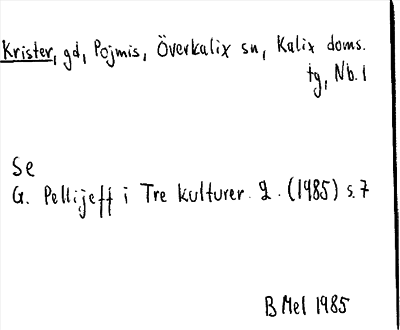 Krister, gd, Pojmis, Överkalix sn, Kalix doms.
tg, Nb. l
Se
G. Pellijeff i Tre kulturer. 2. (1985) s. 7
B Mel 1985